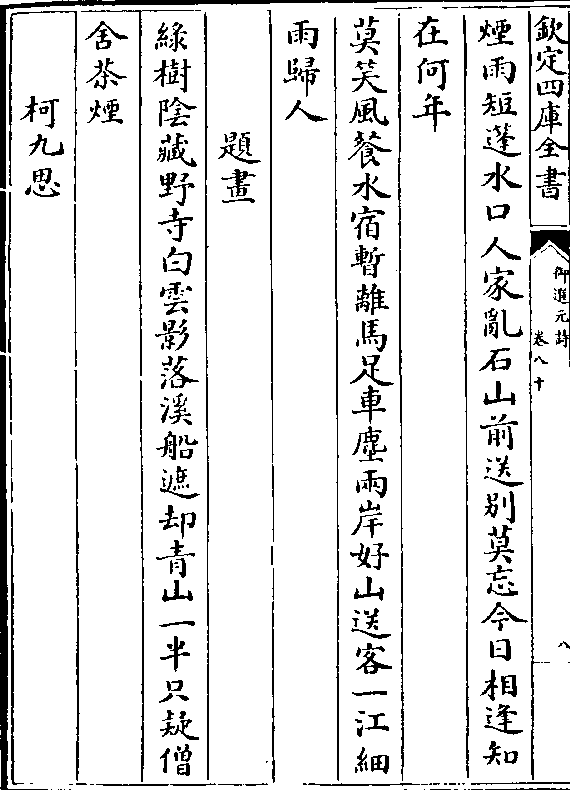 欽定四庫全書
御選元詩
卷八十
八
煙雨短蓬水口人家亂石山前送别莫忘今日相逢知
在何年
莫笑風餐水宿暫離馬足車塵兩岸好山送客一江細
雨歸人
題畫
緑樹陰藏野寺白雲影落溪船遮却青山一半只疑僧
舍茶煙
柯九思